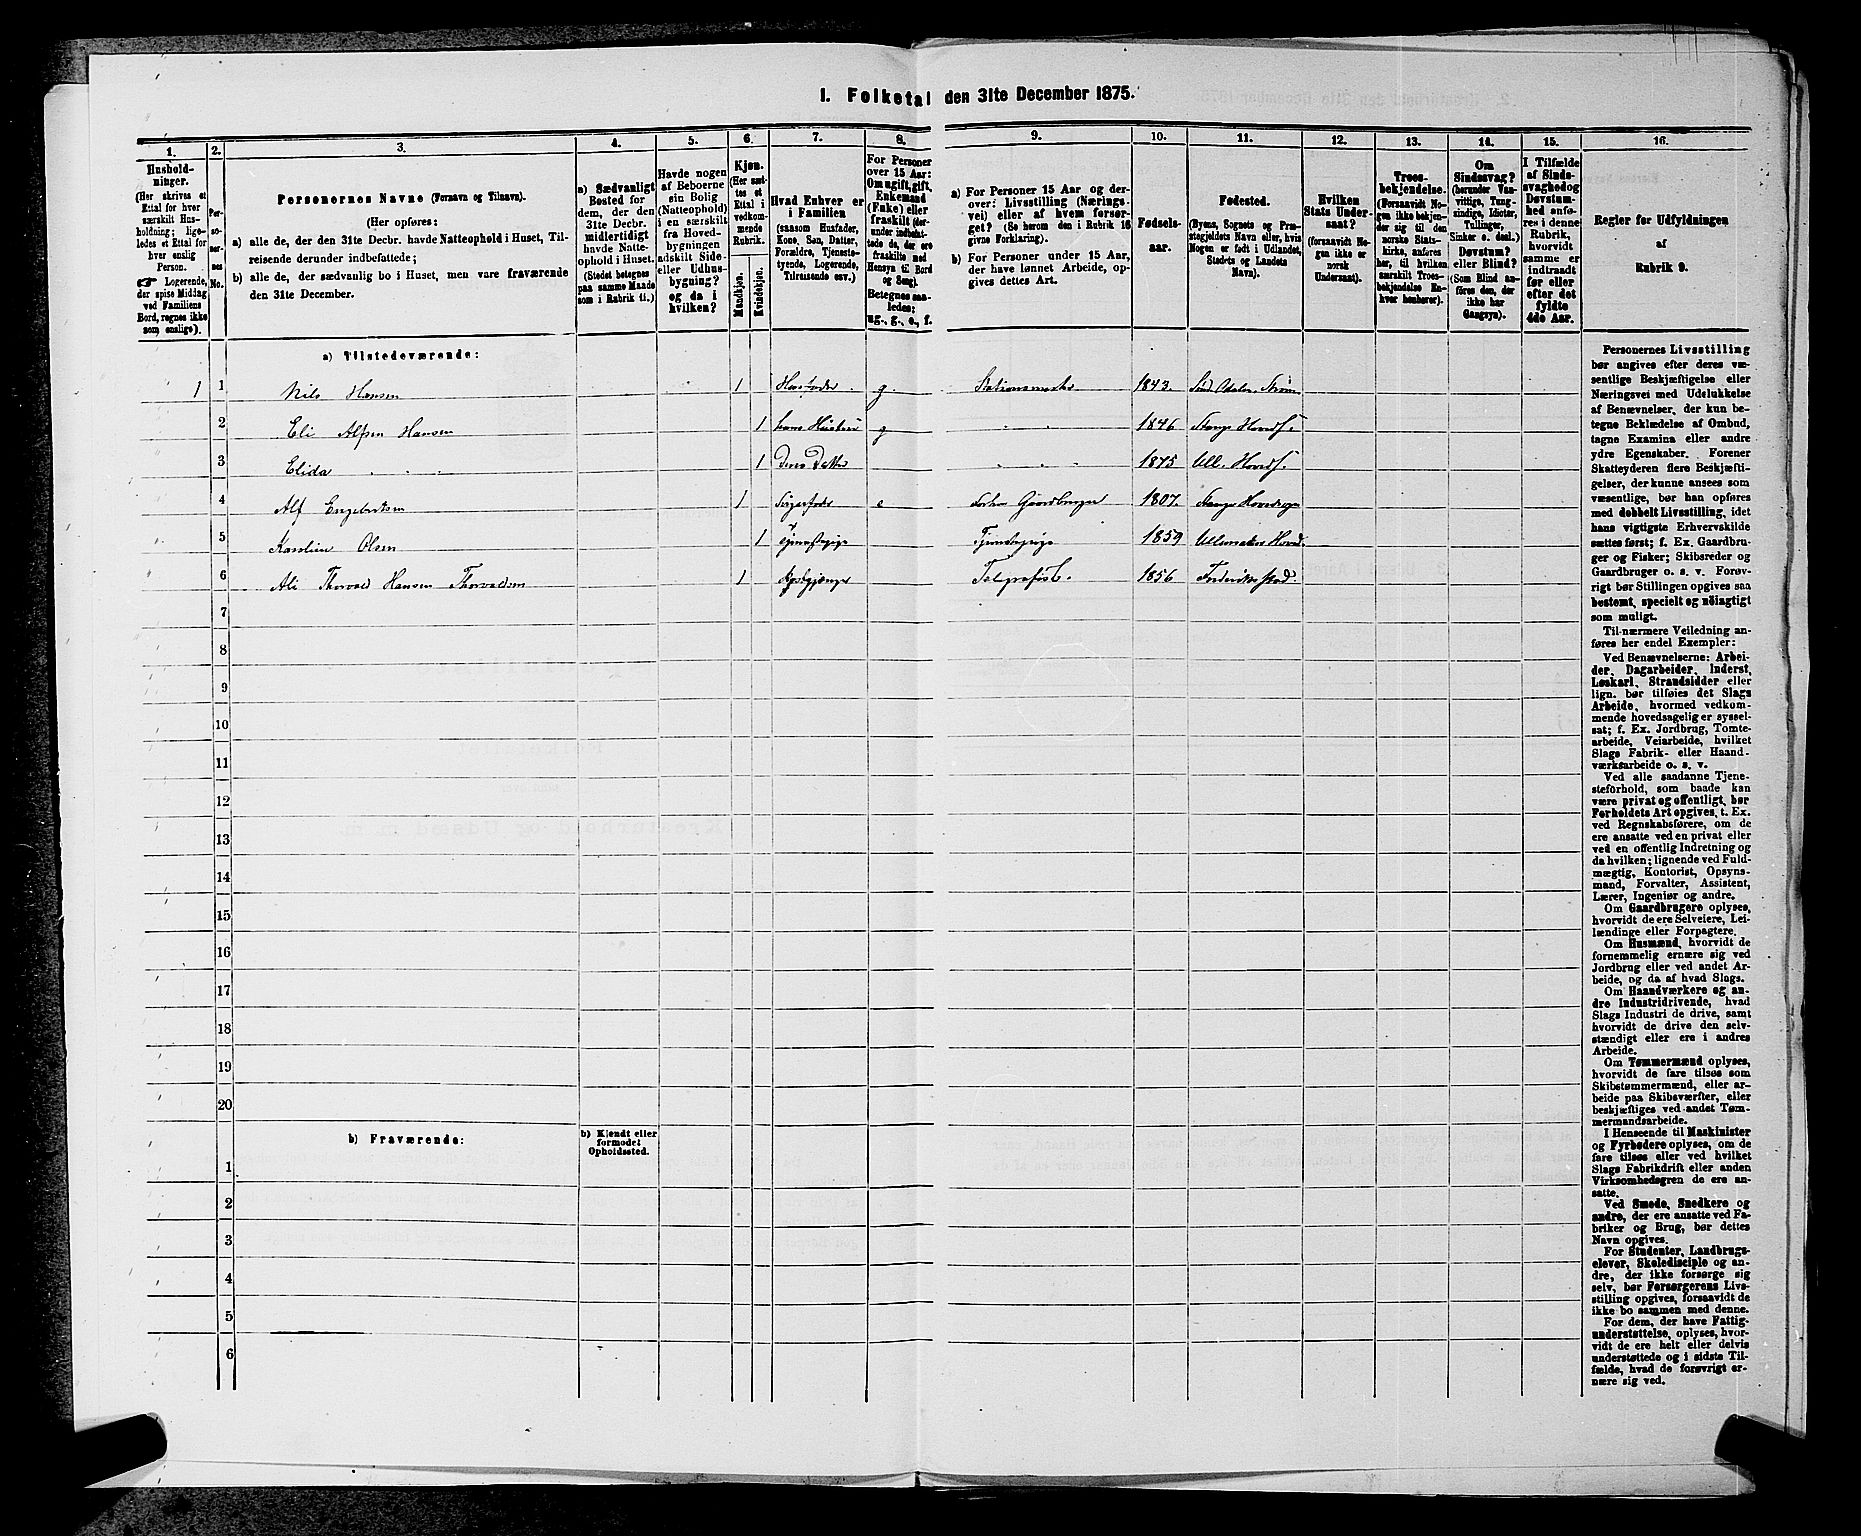 1. Folketal den 31te December 1875.
1. 2. 3. 4. 5. 6. 7. 8. 9. 10. 11. 12. 13. 14. 15. 16.
Husholdninger.
(Her skrives et
Ettal for hver
særskilt Hus-
holdning; lige-
ledes et Ettal for
hver enslig
Person.
Logerende,
der spise Middag
ved Familiens
Bord, regnes ikke
som enslige).
Per-
so-
ner-
nes
No.
Personernes Navne (Fornavn og Tilnavn).
(Her opføres:
a) alle de, der den 31te Decbr. havde Natteophold i Huset, Til-
reisende derunder indbefattede;
b) alle de, der sædvanlig bo i Huset, men vare fraværende
den 31te December.
a) Sædvanligt
Bosted for
dem, der den
31te Decbr.
midlertidigt
havde Natte-
ophold i Huset.
(Stedet betegnes
paa samme Maade
som i Rubrik 11.)
Havde nogen
af Beboerne
sin Bolig
(Natteophold)
i en særskilt
fra Hoved-
bygningen
adskilt Side-
eller Udhus-
bygning?
og da i
hvilken?
Kjøn.
(Her sæt-
tes et
Ettal i
vedkom-
mende
Rubrik.
Mandkjøn.
Kvindekjøn.
Hvad Enhver er
i Familien
(saasom Husfader,
Kone, Søn, Datter,
Forældre, Tjeneste-
tyende, Logerende,
Tilreisende osv.)
For Personer
over 15 Aar:
Om ugift, gift,
Enkemand
(Enke) eller
fraskilt (der-
under indbefat-
tede de, der ere
fraskilte med
Hensyn til Bord
og Seng).
Betegnes saa-
ledes:
ug., g., e., f.
a) For Personer 15 Aar og der-
over: Livsstilling (Nærings-
vei) eller af hvem forsør-
get? (Se herom den i Rubrik 16
givne Forklaring).
b) For Personer under 15 Aar,
der have lønnet Arbeide, op-
gives dettes Art.
Fødsels-
aar.
Fødested.
(Byens, Sognets og Præ-
stegjeldets Navn eller, hvis
Nogen er født i Udlandet,
Stedets og Landets
Navn).
Hvilken
Stats Under-
saat?
(forsaavidt No-
gen ikke er
norsk
Undersaat).
Troes-
bekjendelse.
(Forsaavidt No-
gen ikke bekjen-
der sig til den
norske Stats-
kirke, anføres
her, til hvilken
særskilt Troes-
bekjendelse En-
hver henhører).
Om
Sindssvag?
(herunder Van-
vittige, Tung-
sindige, Idioter,
Sinker o. desl.)
eller Blind?
(Som Blind an-
føres den, der
ikke har
Gangsyn).
I Tilfælde
af Sinds-
svaghed og
Døvstum-
hed anfø-
res i denne
Rubrik,
hvorvidt
samme er
indtraadt
før eller
efter det
fyldte
4de Aar.
Regler for Udfyldningen
af
Rubrik 9.
a) Tilstedeværende:
1 1 Nils Hansen 1 Husfader g. Stationsmester 1843. Strøm
2 Eli Alfsen Hansen 1 hans Hustru g " " 1846 Stange Hovds.
3 Elida " " 1 Deres Datter " " " 1875 Ull. Hovds.
4 Alf Engebretsen 1 e Gaardbruger 1807. Stange Hovedsogn
5 Karoline Olsen 1 Tjenestepige Tjenestepige 1859 Ullensaker Hovd.
6 Thorvald Hansen Thorvaldsen 1 Telegrafist. 1856 Frederiksstad.
7
8
9
10
11
12
13
14
15
16
17
18
19
20
b) Fraværende: b) Kjendt eller
formodet
Opholdssted.
1
2
3
4
5
6
Personernes Livsstilling
bør angives efter deres væ-
sentlige Beskjæftigelse eller
Næringsvei med Udelukkelse
af Benævnelser, der kun be-
tegne Beklædelse af Ombud,
tagne Examina eller andre
ydre Egenskaber. Forener
Skatteyderen flere Beskjæfti-
gelser, der kunne ansees som
væsentlige, bør han opføres
med dobbelt Livsstilling, idet
hans vigtigste Erhvervskilde
sættes først; f. Ex. Gaardbru-
ger og Fisker; Skibsreder og
Gaardbruger o. s. v. Forøv-
rigt bør Stillingen opgives saa
bestemt, specielt og nøiagtigt
som muligt.
Til nærmere Veiledning an-
føres her endel Exempler:
Ved Benævnelserne: Arbei-
der, Dagarbeider, Inderst,
Løskarl, Strandsidder eller
lign. bør tilføies det Slags
Arbeide, hvormed vedkom-
mende hovedsagelig er syssel-
sat; f. Ex. Jordbrug, Tomte-
arbeide, Veiarbeide, hvilket
Slags Fabrik- eller Haand-
værksarbeide o. s. v.
Ved alle saadanne Tjene-
steforhold, som baade kan
være privat og offentligt, bør
Forholdets Art opgives, t. Ex.
ved Regnskabsførere, om de
ere ansatte ved en privat eller
ved en offentlig Indretning og
da hvilken; lignende ved Fuld-
mægtig, Kontorist, Opsyns-
mand, Forvalter, Assistent,
Lærer, Ingeniør og andre.
Om Gaardbrugere oplyses,
hvorvidt de ere Selveiere, Lei-
lændinge eller Forpagtere.
Om Husmænd, hvorvidt de
fornemmelig ernære sig ved
Jordbrug eller ved andet Ar-
beide, og da af hvad Slags.
Om Haandværkere og an-
dre Industridrivende, hvad
Slags Industri de drive, samt
hvorvidt de drive den selv-
stændigt eller ere i andres
Arbeide.
Om Tømmermænd oplyses,
hvorvidt de fare tilsøs som
Skibstømmermænd, eller ar-
beide paa Skibsværfter, eller
beskjæftiges ved andet Tøm-
mermandsarbeide.
I Henseende til Maskinister
og Fyrbødere oplyses, om de
fare tilsøs eller ved hvilket
Slags Fabrikdrift eller anden
Virksomhedsgren de ere an-
satte.
Ved Smede, Snedkere og
andre, der ere ansatte ved Fa-
briker og Brug, bør dettes
Navn opgives.
For Studenter, Landbrugs-
elever, Skoledisciple og an-
dre, der ikke forsørge sig
selv, bør Forsørgerens Livs-
stilling opgives, forsaavidt de
ikke bo sammen med denne.
For dem, der have Fattig-
understøttelse, oplyses, hvor-
vidt de ere helt eller delvis
understøttede og i sidste Til-
fælde, hvad de forøvrigt er-
nære sig ved.